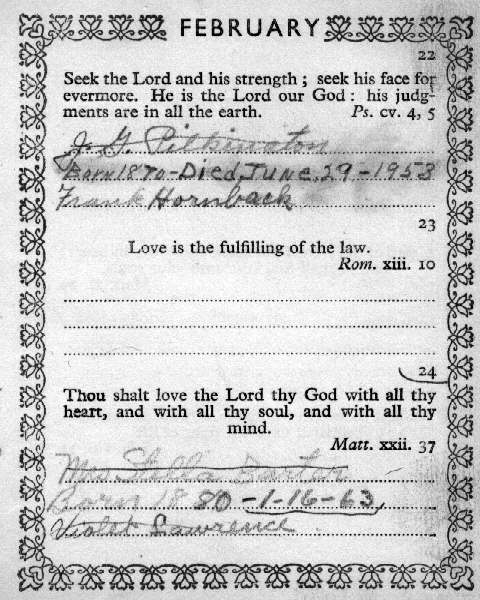 FEBRUARY
22
Seek the Lord and his strength ; seek his face for
evermore. He is the Lord our God : his judg-
ments are in all the earth. Ps. cv. 4, 5
J. G. Pilkington
Born 1870 - Died, June, 29 - 1953
Frank Hornback
23
Love is the fulfilling of the law.
Rom. xiii. 10
24
Thou shalt love the Lord thy God with all thy
heart, and with all thy soul, and with all thy
mind.
Matt. xxii. 37
Mrs Stella Darter
Born 1880 - 1-16-63
Violet Lawrence